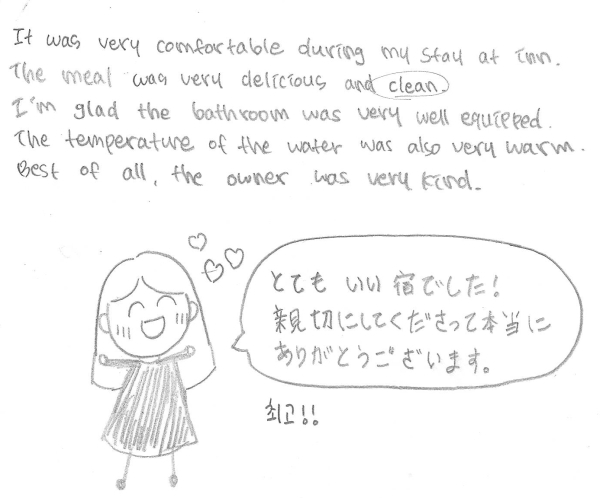 It was very comfortable during my stay at inn.
The meal was very delicious and clean.
I'm glad the bathroom was very well equipped.
The temperature of the water was also very warm.
Best of all, the owner was very kind.
とても いい 宿でした!
親切にしてくださって本当に
ありがとうございます。
최고!!